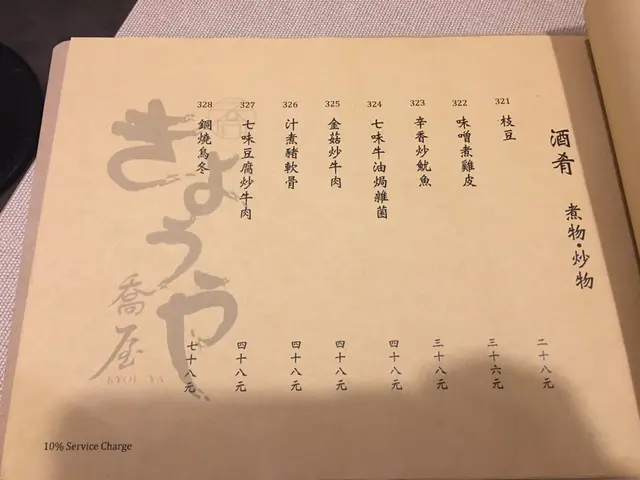 酒肴
煮物・炒物
321
枝豆
二十八元
322
味噌煮雞皮
三十六元
323
辛香炒魷魚
三十八元
324
七味牛油焗雜菌
四十八元
325
金菇炒牛肉
四十八元
326
汁煮豬軟骨
四十八元
327
七味豆腐炒牛肉
四十八元
328
鍋燒烏冬
七十八元
きょうや
喬屋
10% Service Charge